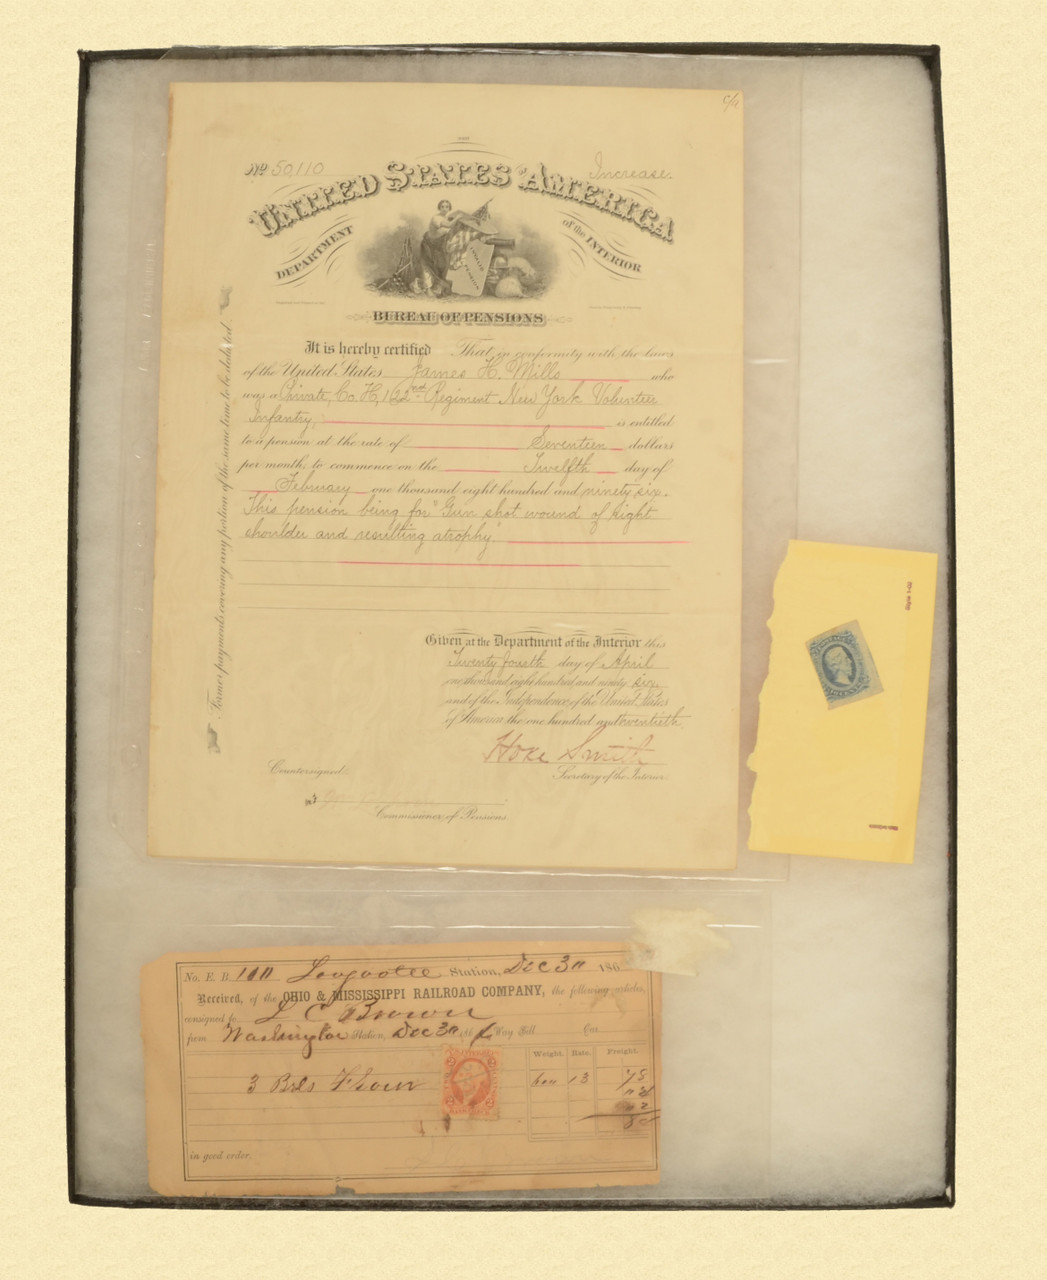 c/a
No 50,110
Increase.
UNITED STATES OF AMERICA
DEPARTMENT of the INTERIOR
BUREAU OF PENSIONS
It is hereby certified That in conformity with the laws
of the United States James H. Mills who
was a Private, Co. H, 122nd Regiment New York Volunteer
Infantry, is entitled
to a pension at the rate of Seventeen dollars
per month, to commence on the Twelfth day of
February one thousand eight hundred and ninety six.
This pension being for "Gun shot wound of right
shoulder and resulting atrophy"
Former payments covering any portion of the same time to be deducted.
Given at the Department of the Interior this
Twenty fourth day of April
one thousand eight hundred and ninety six
and of the Independence of the United States
of America the one hundred and twentieth.
Hoke Smith
Secretary of the Interior.
Countersigned:
Commissioner of Pensions
No. E. B. Loogootee Station, Dec 30 186
Received, of the OHIO & MISSISSIPPI RAILROAD COMPANY, the following articles,
consigned to L C Brown
from Washington Station, Dec 30 Way Bill Car
Weight. Rate. Freight.
3 Bbls Flour 600 13 78
in good order.